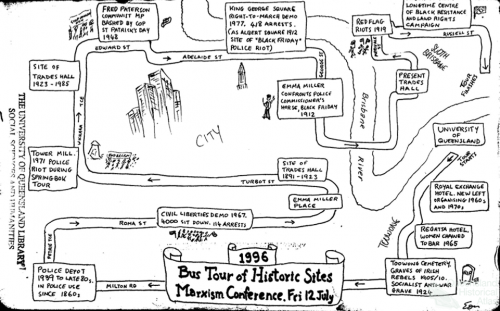 FRED PATERSON
COMMUNIST MP
BASHED BY COP
ST PATRICK'S DAY
1948
KING GEORGE SQUARE
RIGHT-TO-MARCH DEMO
1977. 418 ARRESTS.
(AS ALBERT SQUARE 1912
SITE OF "BLACK FRIDAY"
POLICE RIOT)
RED FLAG
RIOTS 1919
LONGTIME CENTRE
OF BLACK RESISTANCE
AND LAND RIGHTS
CAMPAIGN
RUSSELL ST
SOUTH
BRISBANE
TOUR
FINISHES
EDWARD ST
ADELAIDE ST
GEORGE ST
SITE OF
TRADES HALL
1923-1985
EMMA MILLER
CONFRONTS POLICE
COMMISSIONER'S
HORSE, BLACK FRIDAY
1912
PRESENT
TRADES
HALL
Brisbane
River
CITY
UNIVERSITY
OF
QUEENSLAND
TOUR
STARTS
TOWER MILL.
1971 POLICE
RIOT DURING
SPRINGBOK
TOUR
SITE OF
TRADES HALL
1891-1923
TURBOT ST
EMMA MILLER
PLACE
ROYAL EXCHANGE
HOTEL. NEW LEFT
ORGANISING 1960s
AND 1970s
REGATTA HOTEL.
WOMEN CHAINED
TO BAR 1965
TOOWONG
ROMA ST
CIVIL LIBERTIES DEMO 1967.
4000 SIT DOWN. 114 ARRESTS
TOOWONG CEMETERY.
GRAVES OF IRISH
REBELS
SOCIALIST ANTI-WAR
GRAVE 1924
POLICE DEPOT
IN POLICE USE
SINCE 1860s
MILTON RD
1996
Bus Tour of Historic Sites
Marxism Conference, Fri 12 July
THE UNIVERSITY OF QUEENSLAND LIBRARY
SOCIAL SCIENCES AND HUMANITIES